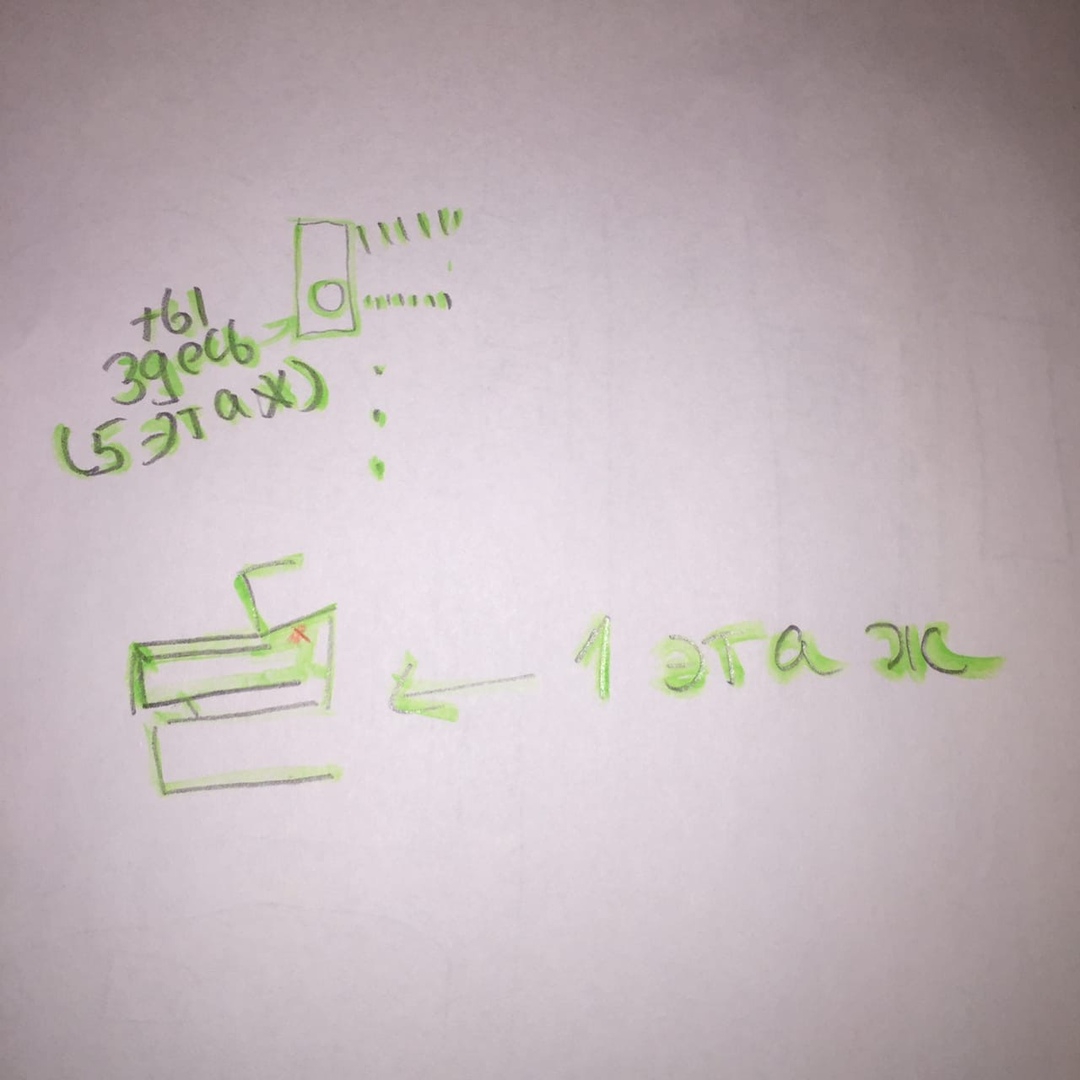 ты
здесь
(5 этаж)
1 этаж